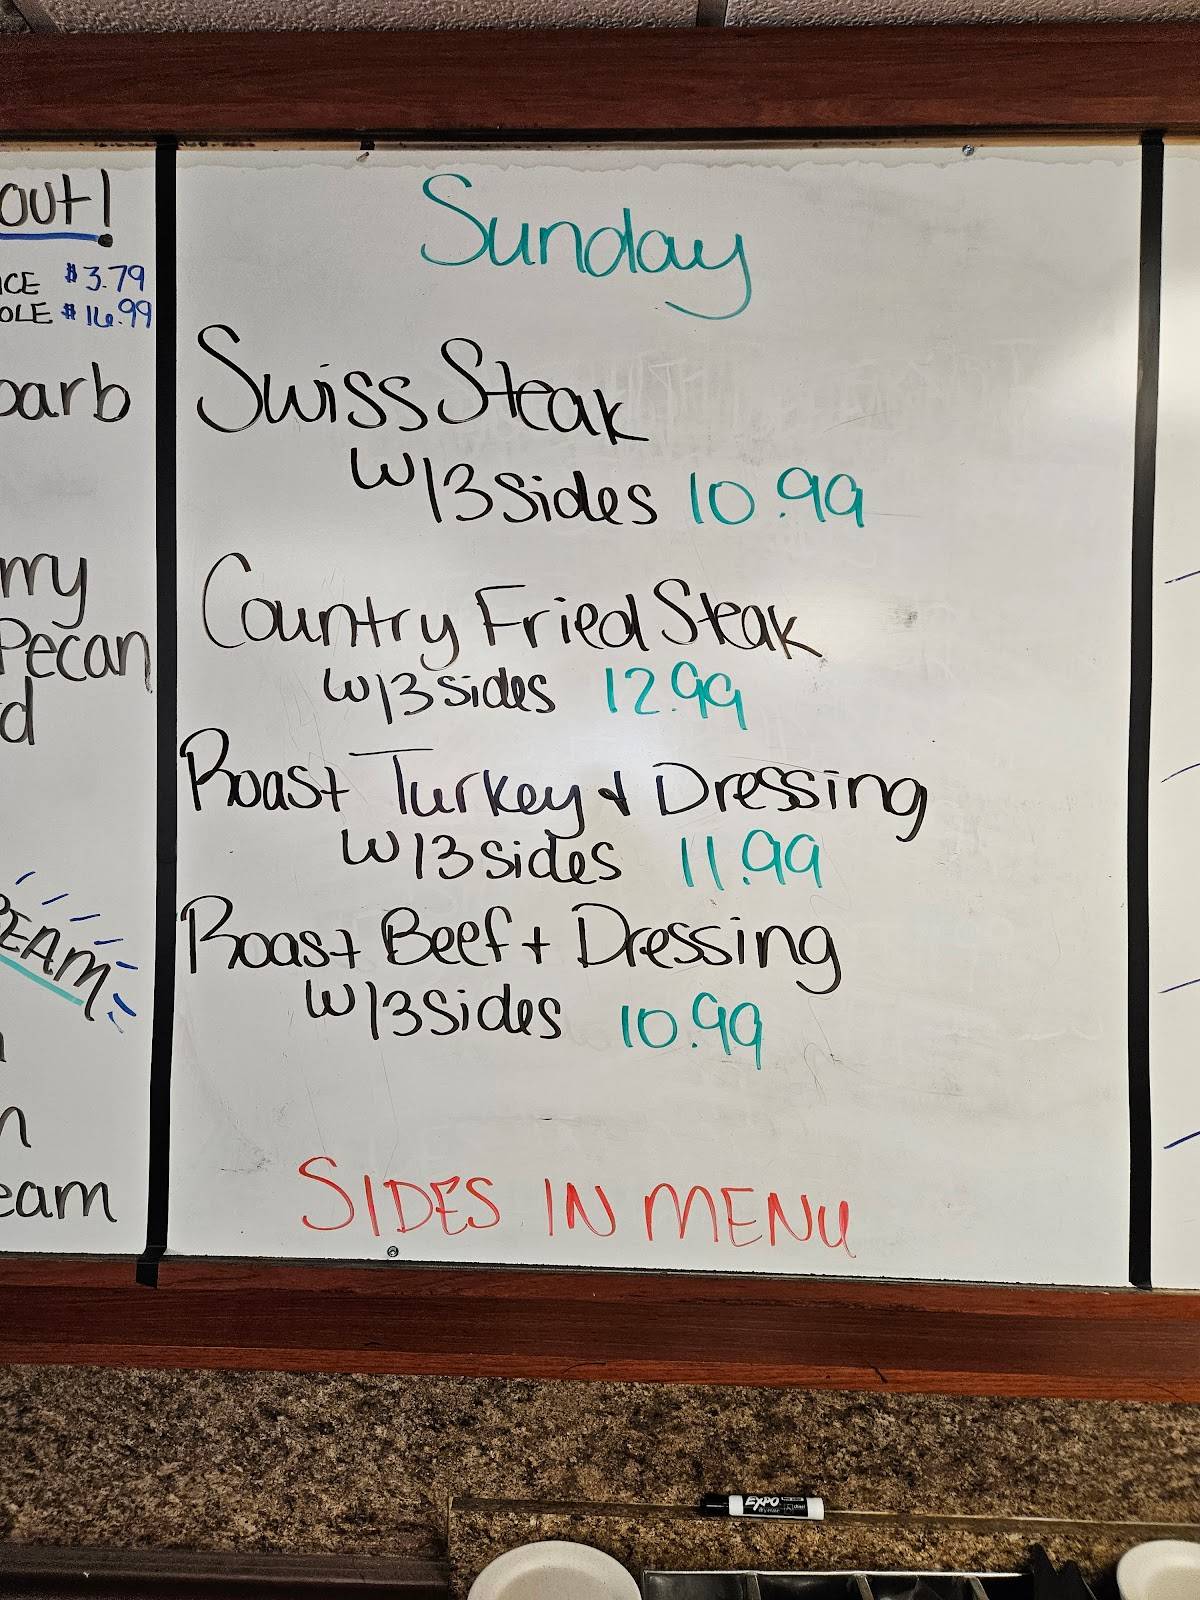 out!
$3.79
$16.99
Pecan
Sunday
Swiss Steak
w/3 sides 10.99
Country Fried Steak
w/3 sides 12.99
Roast Turkey & Dressing
w/3 sides 11.99
Roast Beef + Dressing
w/3 sides 10.99
SIDES IN MENU
EXPO